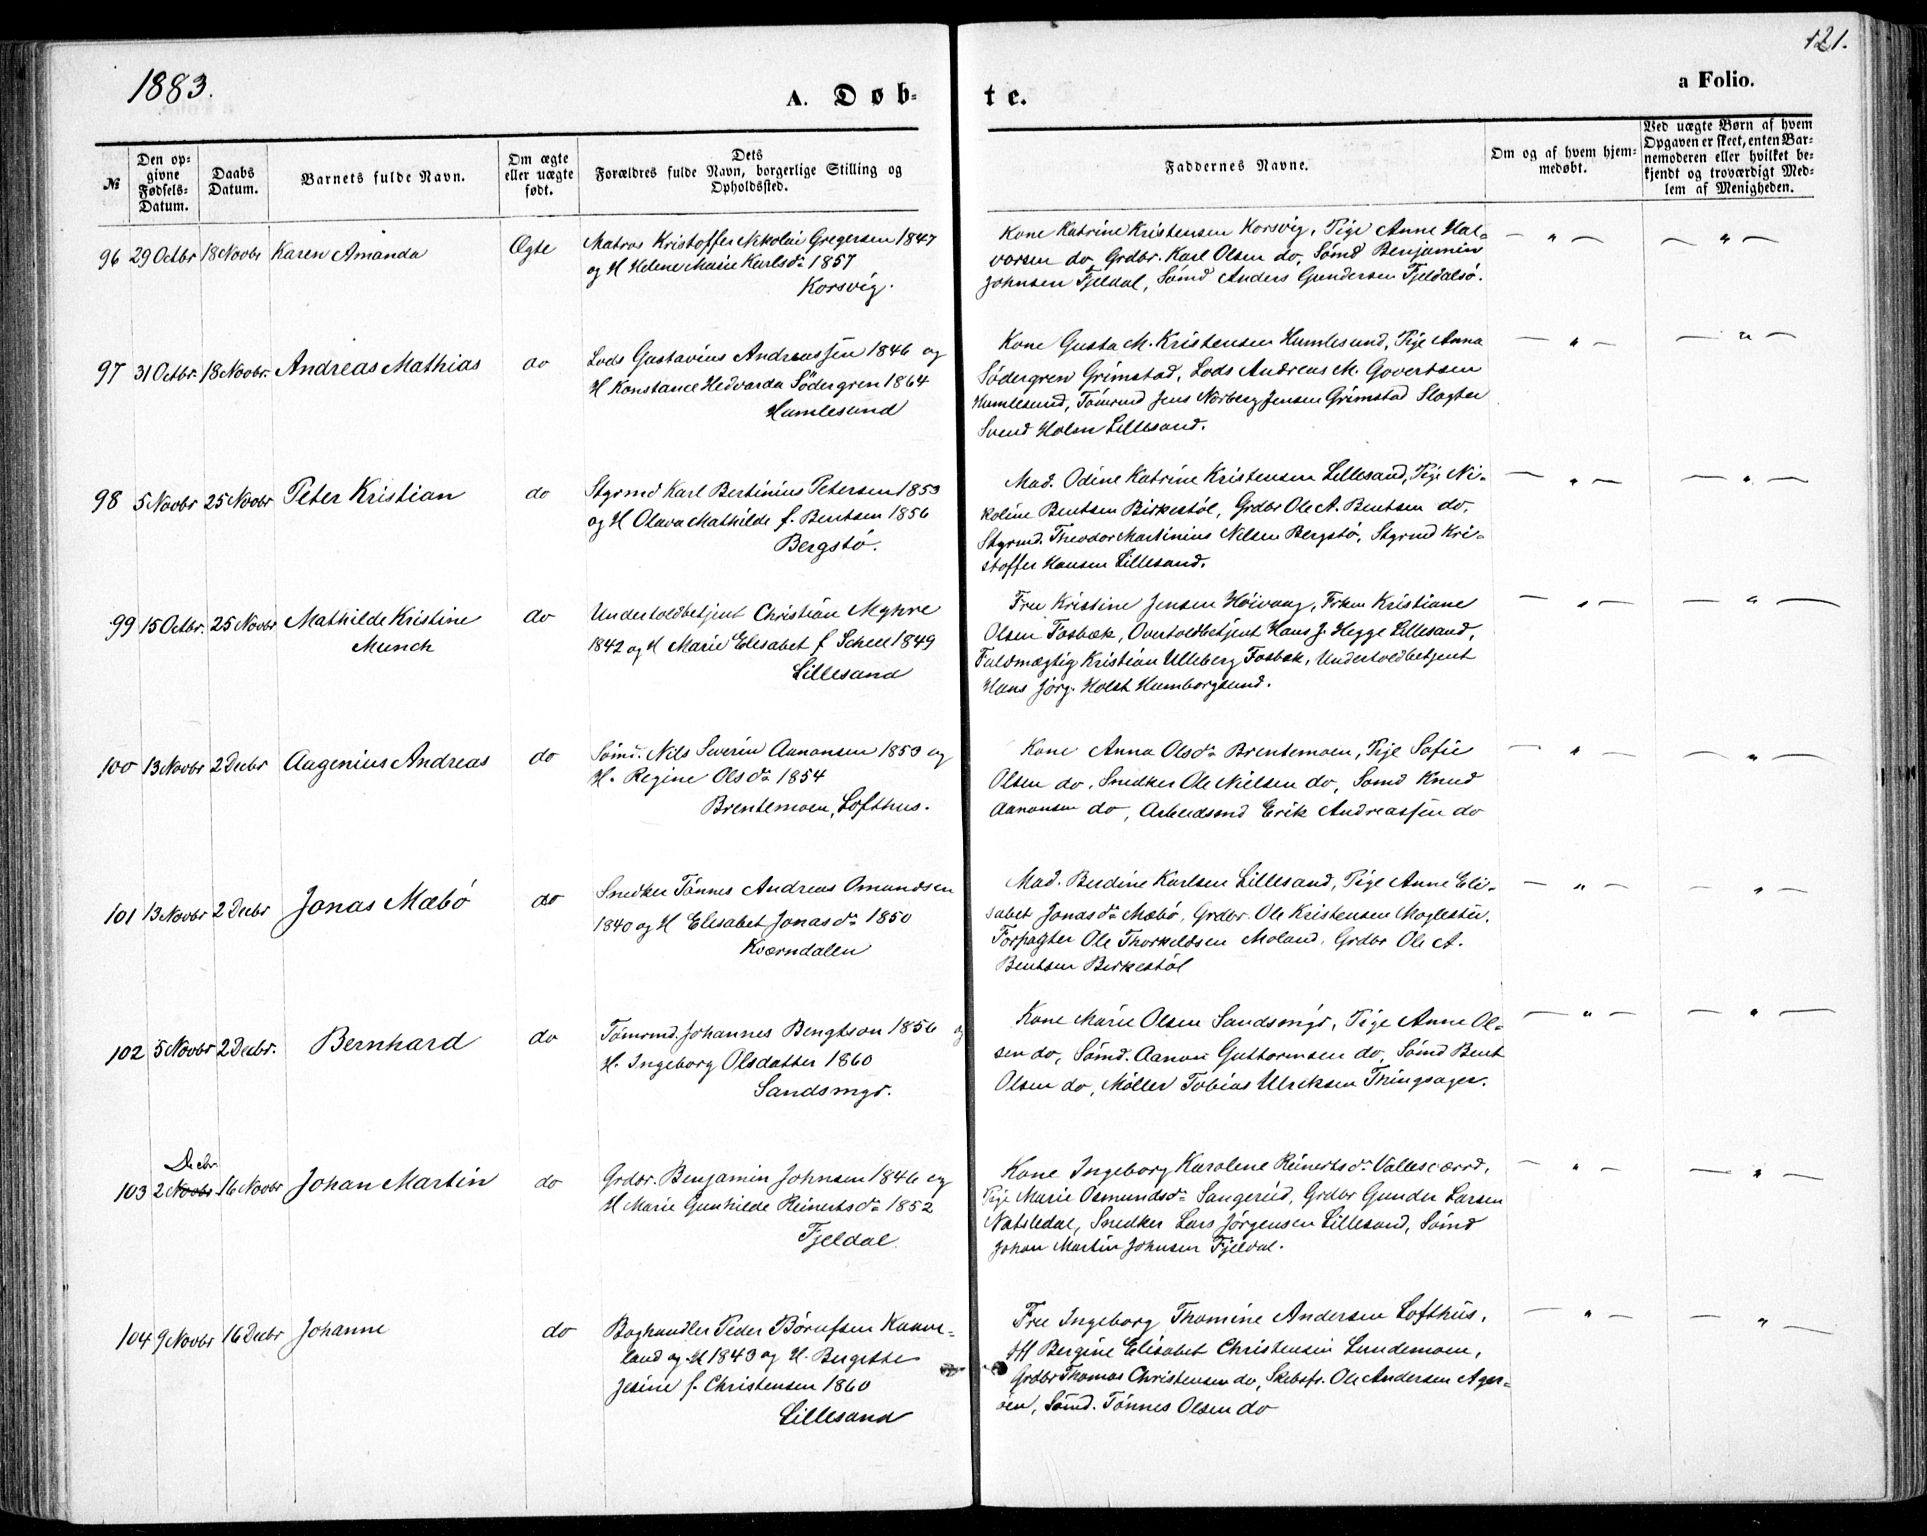 1883.
121.
A. Døb-
te.
a Folio.
№
Den op-
givne
Fødsels-
Datum.
Daabs
Datum.
Barnets fulde Navn.
Om ægte
eller uægte
født.
Dets
Forældres fulde Navn, borgerlige Stilling og
Opholdssted.
Faddernes Navne.
Om og af hvem hjem-
medøbt.
Ved uægte Børn af hvem
Opgaven er skeet, enten Bar-
nemoderen eller hvilket be-
kjendt og troværdigt Med-
lem af Menigheden.
96 29 Octbr 18 Novbr Karen Amanda Ægte
Matros Kristoffer Nikolai Gregersen 1847
og H Helene Marie Karlsdr 1857
Korsvig.
Kone Katrine Kristensen Korsvig, Pige Anne Hal-
vorsen do, Grdbr. Karl Olsen do, Sømd Benjamin
Johnsen Fjeldal, Sømd Anders Gundersen Fjeldalsø.
— " — — " —
97 31 Octbr. 18 Novbr. Andreas Mathias do
Lods Gustavius Andreassen 1846 og
H Konstance Hedvarda Södergren 1864
Humlesund
Kone Gusta M. Kristensen Humlesund, Pige Anna
Södergren Grimstad, Lods Andreas M. Govertsen
Humlesund, Tömrmd Jens Norberg Jensen Grimstad Slagter
Svend Holm Lillesand.
— " — — " —
98 5 Novbr 25 Novbr Peter Kristian do
Styrmd Karl Bertinius Petersen 1853
og H Olava Mathilde f. Bentsen 1856
Bergstø.
Mad. Odine Katrine Kristensen Lillesand, Pige Ni-
koline Bentsen Birkestøl, Grdbr Ole A. Bentsen do,
Styrmd. Theodor Martinius Nilsen Bergstø, Styrmd Kri-
stoffer Hansen Lillesand.
— " — — " —
99 15 Octbr. 25 Novbr Mathilde Kristine
Munch
do
Undertoldbetjent Christian Myhre
1842 og H Marie Elisabet f Scheel 1849
Lillesand
Fru Kristine Jensen Høivaag, Frken Kristiane
Olsen Fosbæk, Overtoldbetjent Hans J. Hegge Lillesand,
Fuldmægtig Kristian Ulleberg Fosbæk, Undertoldbetjent
Hans Jörg. Holst Humborgsund.
— " — — " —
100 13 Novbr 2 Decbr Augenius Andreas do
Sømd. Nils Severin Aanonsen 1853 og
H. Regine Olsdr 1854
Brentemoen, Lofthus.
Kone Anna Olsdr Brentemoen, Pige Sofie
Olsen do, Snedker Ole Nielsen do, Sømd Knud
Aanonsen do, Arbeidsmd Erik Andreassen do
— " — — " —
101 13 Novbr 2 Decbr Jonas Mæbø do
Snedker Tönnes Andreas Omundsen
1840 og H Elisabet Jonasdr 1850
Kværndalen
Mad. Berdine Karlsen Lillesand, Pige Anne Eli-
sabet Jonasdr Mæbø, Grdbr. Ole Kristensen Moglestu,
Forpagter Ole Thorkeldsen Moland, Grdbr Ole A.
Bentsen Birkestöl
— " — — " —
102 5 Novbr 2 Decbr. Bernhard do
Tømrmd. Johannes Bengtson 1856 og
H. Ingeborg Olsdatter 1860
Sandsmyr.
Kone Marie Olsen Sandsmyr, Pige Anne Ol-
sen do, Sømd. Aanon Guttormsen do, Sømd Bent
Olsen do, Møller Tobias Ulriksen Thingsager.
— " — — " —
Decbr
103 2 Novbr 16 Novbr Johan Martin do
Grdbr. Benjamin Johnsen 1846 og
H Marie Gunhilde Reinertsdr 1852
Fjeldal
Kone Ingeborg Karolene Reinertsdr Vallesværd,
Pige Marie Osmundsdr Sangereid, Grdbr Gunder Larsen
Natsledal, Snedker Lars Jørgensen Lillesand, Sømd
Johan Martin Johnsen Fjeldal.
— " — — " —
104 9 Novbr 16 Decbr Johanne do
Boghandler Peder Børufsen Kanve-
land og H 1843 og H. Bergitte
Jesine f. Christensen 1860
Lillesand
Fru Ingeborg Thomine Andersen Lofthus,
Bergine Elisabet Christensen Lundemoen,
Grdbr Thomas Christensen do, Skibsfr. Ole Andersen Ager-
øen, Sømd. Tønnes Olsen do
— " — — " —